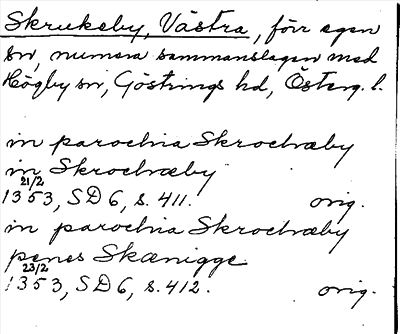 Skrukeby, Västra, förr egen
sn, numera sammanslagen med
Högby sn, Göstrings hd, Österg. l.
in parochia Skroctræby
in Skroctræby
21/2
1353, SD 6, s. 411. orig.
in parochia Skroctræby
penes Skænigge
23/2
1353, SD 6, s. 412. orig.